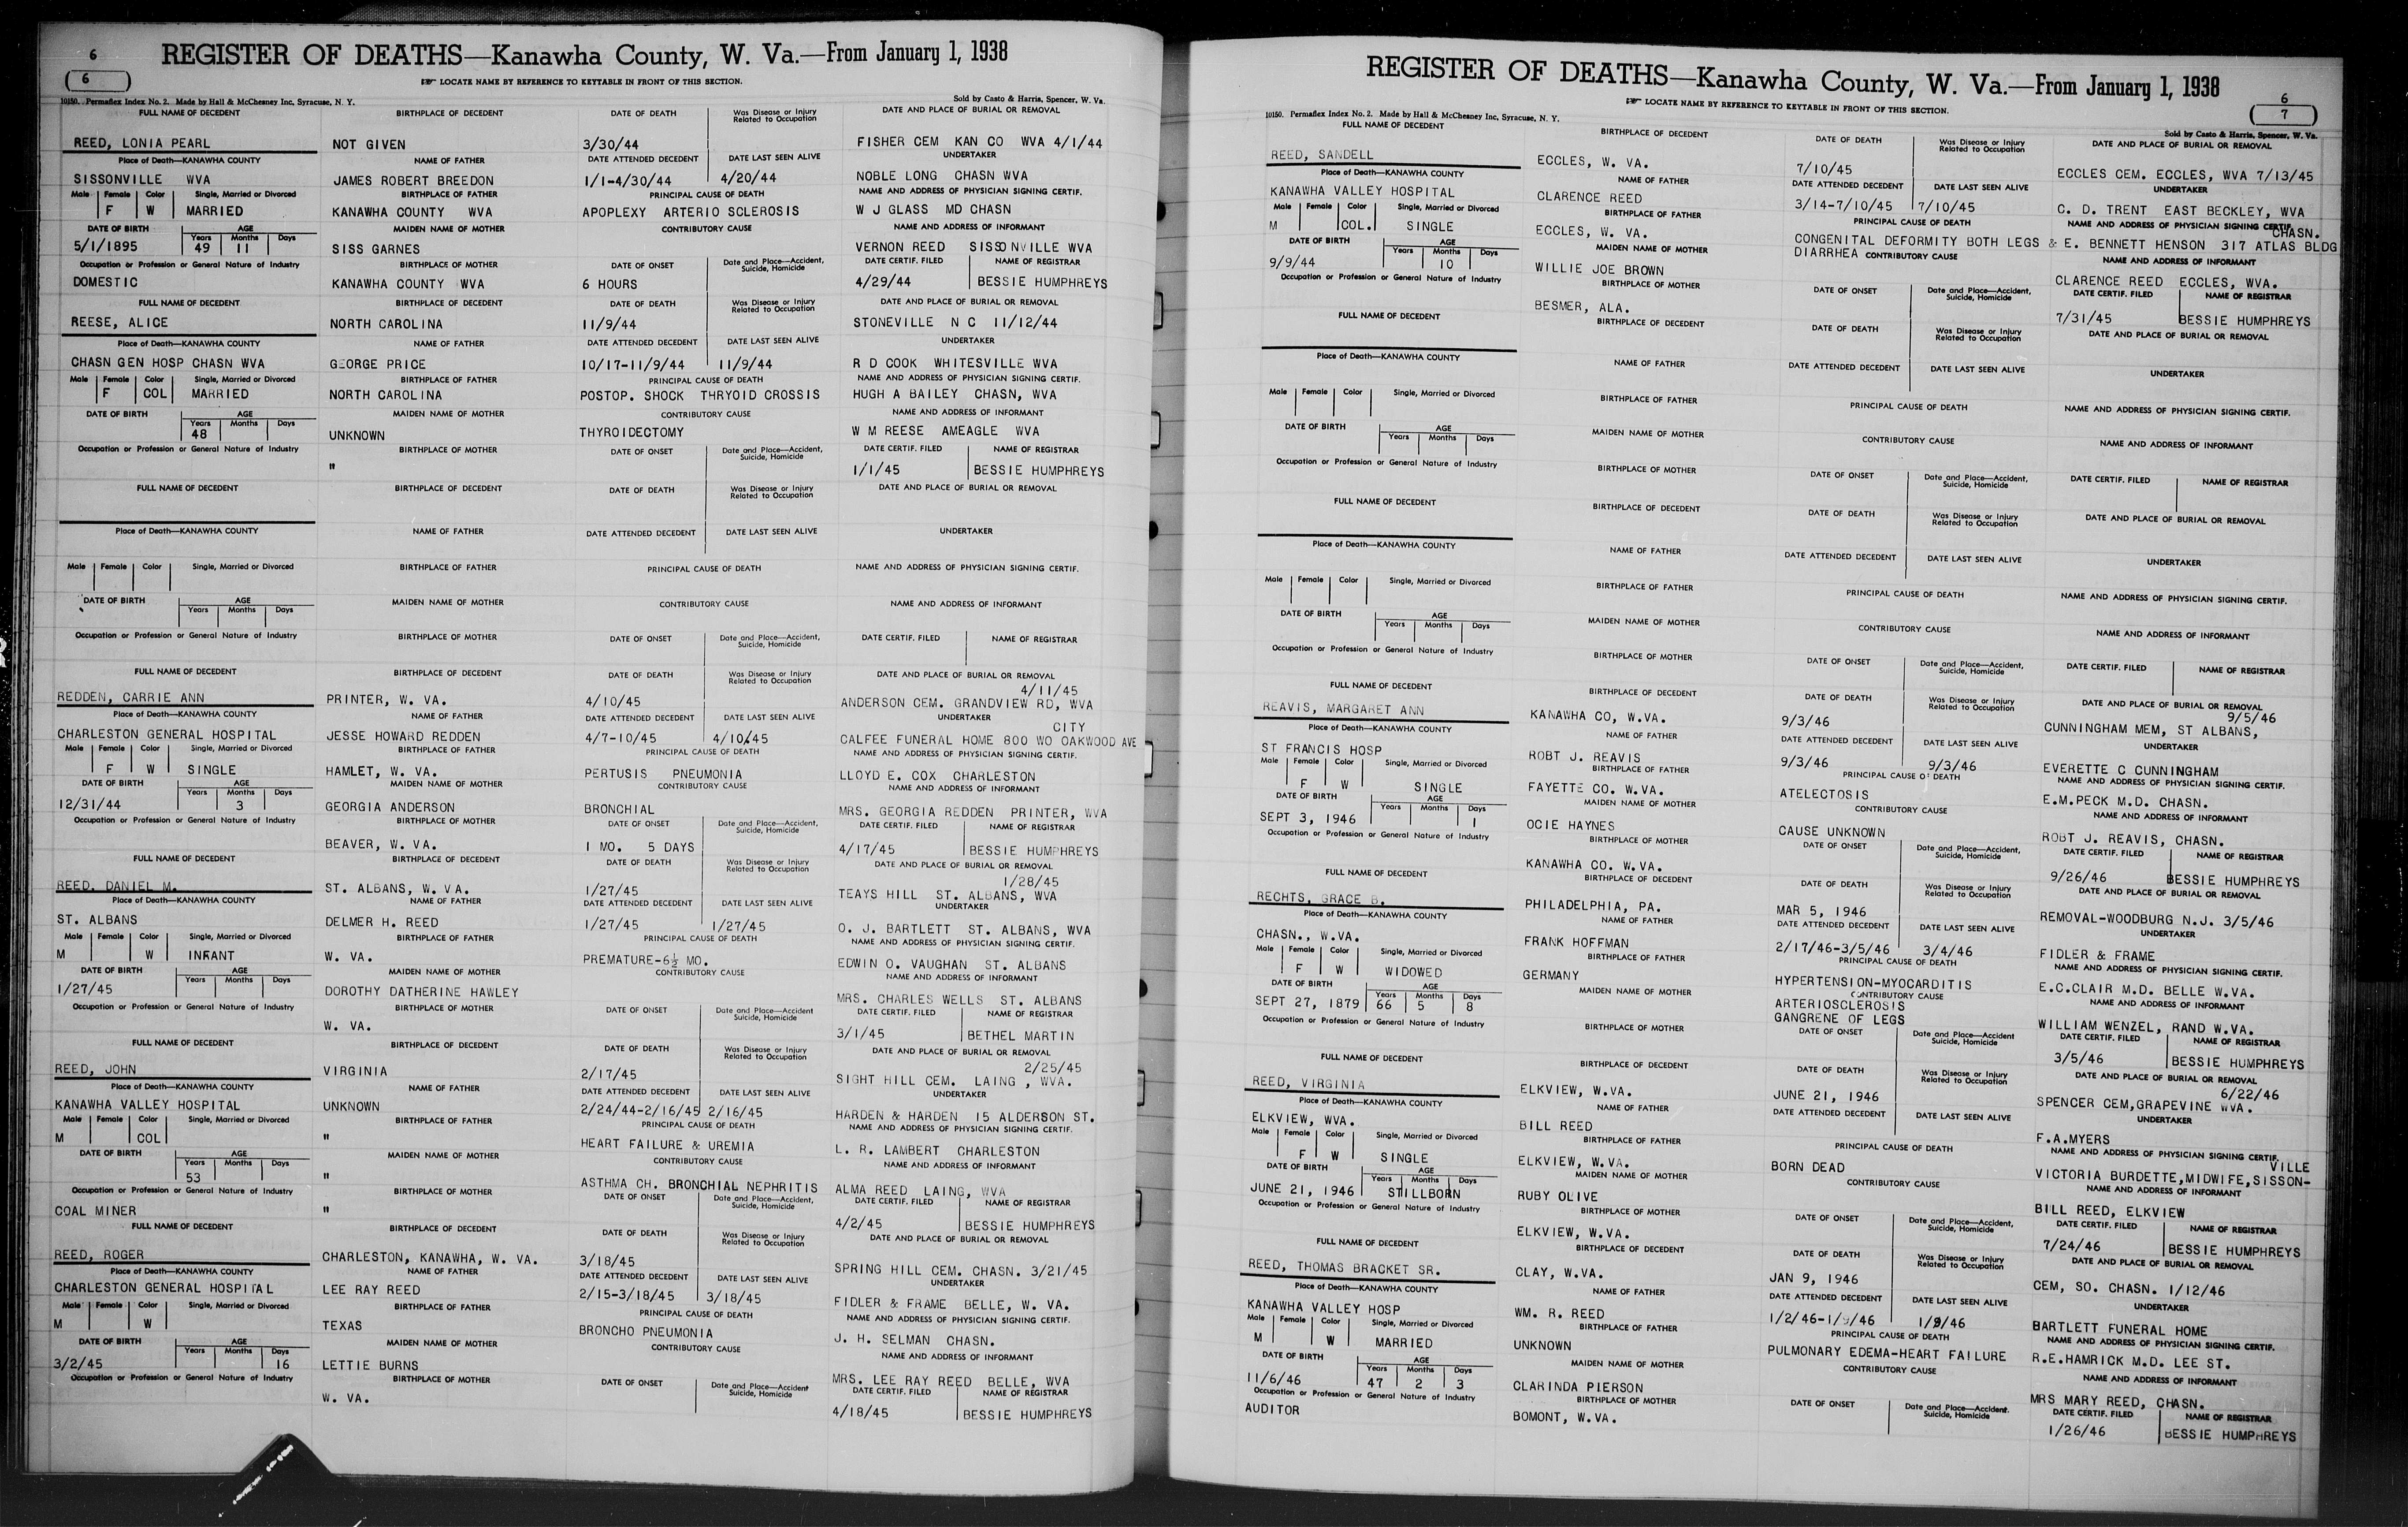 6
REGISTER OF DEATHS—Kanawha County, W. Va.—From January 1, 1938
6
LOCATE NAME BY REFERENCE TO KEYTABLE IN FRONT OF THIS SECTION.
10150. Permaflex Index No. 2. Made by Hall & McChesney Inc, Syracuse, N. Y. Sold by Casto & Harris, Spencer, W. Va.
FULL NAME OF DECEDENT BIRTHPLACE OF DECEDENT DATE OF DEATH Was Disease or Injury Related to Occupation DATE AND PLACE OF BURIAL OR REMOVAL
REED, LONIA PEARL NOT GIVEN 3/30/44 FISHER CEM KAN CO WVA 4/1/44
Place of Death—KANAWHA COUNTY NAME OF FATHER DATE ATTENDED DECEDENT DATE LAST SEEN ALIVE UNDERTAKER
SISSONVILLE WVA JAMES ROBERT BREEDON 1/1-4/30/44 4/20/44 NOBLE LONG CHASN WVA
Male Female Color Single, Married or Divorced BIRTHPLACE OF FATHER PRINCIPAL CAUSE OF DEATH NAME AND ADDRESS OF PHYSICIAN SIGNING CERTIF.
F W MARRIED KANAWHA COUNTY WVA APOPLEXY ARTERIO SCLEROSIS W J GLASS MD CHASN
DATE OF BIRTH AGE Years Months Days MAIDEN NAME OF MOTHER CONTRIBUTORY CAUSE NAME AND ADDRESS OF INFORMANT
5/1/1895 49 11 SISS GARNES VERNON REED SISSONVILLE WVA
Occupation or Profession or General Nature of Industry BIRTHPLACE OF MOTHER DATE OF ONSET Date and Place—Accident, Suicide, Homicide DATE CERTIF. FILED NAME OF REGISTRAR
DOMESTIC KANAWHA COUNTY WVA 6 HOURS 4/29/44 BESSIE HUMPHREYS
FULL NAME OF DECEDENT BIRTHPLACE OF DECEDENT DATE OF DEATH Was Disease or Injury Related to Occupation DATE AND PLACE OF BURIAL OR REMOVAL
REESE, ALICE NORTH CAROLINA 11/9/44 STONEVILLE N C 11/12/44
Place of Death—KANAWHA COUNTY NAME OF FATHER DATE ATTENDED DECEDENT DATE LAST SEEN ALIVE UNDERTAKER
CHASN GEN HOSP CHASN WVA GEORGE PRICE 10/17-11/9/44 11/9/44 R D COOK WHITESVILLE WVA
Male Female Color Single, Married or Divorced BIRTHPLACE OF FATHER PRINCIPAL CAUSE OF DEATH NAME AND ADDRESS OF PHYSICIAN SIGNING CERTIF.
F COL MARRIED NORTH CAROLINA POSTOP. SHOCK THRYOID CROSSIS HUGH A BAILEY CHASN, WVA
DATE OF BIRTH AGE Years Months Days MAIDEN NAME OF MOTHER CONTRIBUTORY CAUSE NAME AND ADDRESS OF INFORMANT
48 UNKNOWN THYROIDECTOMY W M REESE AMEAGLE WVA
Occupation or Profession or General Nature of Industry BIRTHPLACE OF MOTHER DATE OF ONSET Date and Place—Accident, Suicide, Homicide DATE CERTIF. FILED NAME OF REGISTRAR
" 1/1/45 BESSIE HUMPHREYS
FULL NAME OF DECEDENT BIRTHPLACE OF DECEDENT DATE OF DEATH Was Disease or Injury Related to Occupation DATE AND PLACE OF BURIAL OR REMOVAL
Place of Death—KANAWHA COUNTY NAME OF FATHER DATE ATTENDED DECEDENT DATE LAST SEEN ALIVE UNDERTAKER
Male Female Color Single, Married or Divorced BIRTHPLACE OF FATHER PRINCIPAL CAUSE OF DEATH NAME AND ADDRESS OF PHYSICIAN SIGNING CERTIF.
DATE OF BIRTH AGE Years Months Days MAIDEN NAME OF MOTHER CONTRIBUTORY CAUSE NAME AND ADDRESS OF INFORMANT
Occupation or Profession or General Nature of Industry BIRTHPLACE OF MOTHER DATE OF ONSET Date and Place—Accident, Suicide, Homicide DATE CERTIF. FILED NAME OF REGISTRAR
FULL NAME OF DECEDENT BIRTHPLACE OF DECEDENT DATE OF DEATH Was Disease or Injury Related to Occupation DATE AND PLACE OF BURIAL OR REMOVAL
4/11/45
REDDEN, CARRIE ANN PRINTER, W. VA. 4/10/45 ANDERSON CEM. GRANDVIEW RD, WVA
Place of Death—KANAWHA COUNTY NAME OF FATHER DATE ATTENDED DECEDENT DATE LAST SEEN ALIVE UNDERTAKER
CITY
CHARLESTON GENERAL HOSPITAL JESSE HOWARD REDDEN 4/7-10/45 4/10/45 CALFEE FUNERAL HOME 800 WO OAKWOOD AVE
Male Female Color Single, Married or Divorced BIRTHPLACE OF FATHER PRINCIPAL CAUSE OF DEATH NAME AND ADDRESS OF PHYSICIAN SIGNING CERTIF.
F W SINGLE HAMLET, W. VA. PERTUSIS PNEUMONIA LLOYD E. COX CHARLESTON
DATE OF BIRTH AGE Years Months Days MAIDEN NAME OF MOTHER CONTRIBUTORY CAUSE NAME AND ADDRESS OF INFORMANT
12/31/44 3 GEORGIA ANDERSON BRONCHIAL MRS. GEORGIA REDDEN PRINTER, WVA
Occupation or Profession or General Nature of Industry BIRTHPLACE OF MOTHER DATE OF ONSET Date and Place—Accident, Suicide, Homicide DATE CERTIF. FILED NAME OF REGISTRAR
BEAVER, W. VA. 1 MO. 5 DAYS 4/17/45 BESSIE HUMPHREYS
FULL NAME OF DECEDENT BIRTHPLACE OF DECEDENT DATE OF DEATH Was Disease or Injury Related to Occupation DATE AND PLACE OF BURIAL OR REMOVAL
1/28/45
REED, DANIEL M. ST. ALBANS, W. VA. 1/27/45 TEAYS HILL ST. ALBANS, WVA
Place of Death—KANAWHA COUNTY NAME OF FATHER DATE ATTENDED DECEDENT DATE LAST SEEN ALIVE UNDERTAKER
ST. ALBANS DELMER H. REED 1/27/45 1/27/45 O. J. BARTLETT ST. ALBANS, WVA
Male Female Color Single, Married or Divorced BIRTHPLACE OF FATHER PRINCIPAL CAUSE OF DEATH NAME AND ADDRESS OF PHYSICIAN SIGNING CERTIF.
M W INFANT W. VA. PREMATURE-6½ MO. EDWIN O. VAUGHAN ST. ALBANS
DATE OF BIRTH AGE Years Months Days MAIDEN NAME OF MOTHER CONTRIBUTORY CAUSE NAME AND ADDRESS OF INFORMANT
1/27/45 DOROTHY DATHERINE HAWLEY MRS. CHARLES WELLS ST. ALBANS
Occupation or Profession or General Nature of Industry BIRTHPLACE OF MOTHER DATE OF ONSET Date and Place—Accident Suicide, Homicide DATE CERTIF. FILED NAME OF REGISTRAR
W. VA. 3/1/45 BETHEL MARTIN
FULL NAME OF DECEDENT BIRTHPLACE OF DECEDENT DATE OF DEATH Was Disease or Injury Related to Occupation DATE AND PLACE OF BURIAL OR REMOVAL
2/25/45
REED, JOHN VIRGINIA 2/17/45 SIGHT HILL CEM. LAING , WVA.
Place of Death—KANAWHA COUNTY NAME OF FATHER DATE ATTENDED DECEDENT DATE LAST SEEN ALIVE UNDERTAKER
KANAWHA VALLEY HOSPITAL UNKNOWN 2/24/44-2/16/45 2/16/45 HARDEN & HARDEN 15 ALDERSON ST.
Male Female Color Single, Married or Divorced BIRTHPLACE OF FATHER PRINCIPAL CAUSE OF DEATH NAME AND ADDRESS OF PHYSICIAN SIGNING CERTIF.
M COL " HEART FAILURE & UREMIA L. R. LAMBERT CHARLESTON
DATE OF BIRTH AGE Years Months Days MAIDEN NAME OF MOTHER CONTRIBUTORY CAUSE NAME AND ADDRESS OF INFORMANT
53 " ASTHMA CH. BRONCHIAL NEPHRITIS ALMA REED LAING, WVA
Occupation or Profession or General Nature of Industry BIRTHPLACE OF MOTHER DATE OF ONSET Date and Place—Accident, Suicide, Homicide DATE CERTIF. FILED NAME OF REGISTRAR
COAL MINER " 4/2/45 BESSIE HUMPHREYS
FULL NAME OF DECEDENT BIRTHPLACE OF DECEDENT DATE OF DEATH Was Disease or Injury Related to Occupation DATE AND PLACE OF BURIAL OR REMOVAL
REED, ROGER CHARLESTON, KANAWHA, W. VA. 3/18/45 SPRING HILL CEM. CHASN. 3/21/45
Place of Death—KANAWHA COUNTY NAME OF FATHER DATE ATTENDED DECEDENT DATE LAST SEEN ALIVE UNDERTAKER
CHARLESTON GENERAL HOSPITAL LEE RAY REED 2/15-3/18/45 3/18/45 FIDLER & FRAME BELLE, W. VA.
Male Female Color Single, Married or Divorced BIRTHPLACE OF FATHER PRINCIPAL CAUSE OF DEATH NAME AND ADDRESS OF PHYSICIAN SIGNING CERTIF.
M W TEXAS BRONCHO PNEUMONIA J. H. SELMAN CHASN.
DATE OF BIRTH AGE Years Months Days MAIDEN NAME OF MOTHER CONTRIBUTORY CAUSE NAME AND ADDRESS OF INFORMANT
3/2/45 16 LETTIE BURNS MRS. LEE RAY REED BELLE, WVA
Occupation or Profession or General Nature of Industry BIRTHPLACE OF MOTHER DATE OF ONSET Date and Place—Accident Suicide, Homicide DATE CERTIF. FILED NAME OF REGISTRAR
W. VA. 4/18/45 BESSIE HUMPHREYS
REGISTER OF DEATHS—Kanawha County, W. Va.—From January 1, 1938
6
7
LOCATE NAME BY REFERENCE TO KEYTABLE IN FRONT OF THIS SECTION.
10150. Permaflex Index No. 2. Made by Hall & McChesney Inc, Syracuse, N. Y. Sold by Casto & Harris, Spencer, W. Va.
FULL NAME OF DECEDENT BIRTHPLACE OF DECEDENT DATE OF DEATH Was Disease or Injury Related to Occupation DATE AND PLACE OF BURIAL OR REMOVAL
REED, SANDELL ECCLES, W. VA. 7/10/45 ECCLES CEM. ECCLES, WVA 7/13/45
Place of Death—KANAWHA COUNTY NAME OF FATHER DATE ATTENDED DECEDENT DATE LAST SEEN ALIVE UNDERTAKER
KANAWHA VALLEY HOSPITAL CLARENCE REED 3/14-7/10/45 7/10/45 C. D. TRENT EAST BECKLEY, WVA
Male Female Color Single, Married or Divorced BIRTHPLACE OF FATHER PRINCIPAL CAUSE OF DEATH NAME AND ADDRESS OF PHYSICIAN SIGNING CERTIF.
CHASN.
M COL. SINGLE ECCLES, W. VA. CONGENITAL DEFORMITY BOTH LEGS & E. BENNETT HENSON 317 ATLAS BLDG
DIARRHEA
DATE OF BIRTH AGE Years Months Days MAIDEN NAME OF MOTHER CONTRIBUTORY CAUSE NAME AND ADDRESS OF INFORMANT
9/9/44 10 WILLIE JOE BROWN CLARENCE REED ECCLES, WVA.
Occupation or Profession or General Nature of Industry BIRTHPLACE OF MOTHER DATE OF ONSET Date and Place—Accident, Suicide, Homicide DATE CERTIF. FILED NAME OF REGISTRAR
BESMER, ALA. 7/31/45 BESSIE HUMPHREYS
FULL NAME OF DECEDENT BIRTHPLACE OF DECEDENT DATE OF DEATH Was Disease or Injury Related to Occupation DATE AND PLACE OF BURIAL OR REMOVAL
Place of Death—KANAWHA COUNTY NAME OF FATHER DATE ATTENDED DECEDENT DATE LAST SEEN ALIVE UNDERTAKER
Male Female Color Single, Married or Divorced BIRTHPLACE OF FATHER PRINCIPAL CAUSE OF DEATH NAME AND ADDRESS OF PHYSICIAN SIGNING CERTIF.
DATE OF BIRTH AGE Years Months Days MAIDEN NAME OF MOTHER CONTRIBUTORY CAUSE NAME AND ADDRESS OF INFORMANT
Occupation or Profession or General Nature of Industry BIRTHPLACE OF MOTHER DATE OF ONSET Date and Place—Accident, Suicide, Homicide DATE CERTIF. FILED NAME OF REGISTRAR
FULL NAME OF DECEDENT BIRTHPLACE OF DECEDENT DATE OF DEATH Was Disease or Injury Related to Occupation DATE AND PLACE OF BURIAL OR REMOVAL
Place of Death—KANAWHA COUNTY NAME OF FATHER DATE ATTENDED DECEDENT DATE LAST SEEN ALIVE UNDERTAKER
Male Female Color Single, Married or Divorced BIRTHPLACE OF FATHER PRINCIPAL CAUSE OF DEATH NAME AND ADDRESS OF PHYSICIAN SIGNING CERTIF.
DATE OF BIRTH AGE Years Months Days MAIDEN NAME OF MOTHER CONTRIBUTORY CAUSE NAME AND ADDRESS OF INFORMANT
Occupation or Profession or General Nature of Industry BIRTHPLACE OF MOTHER DATE OF ONSET Date and Place—Accident, Suicide, Homicide DATE CERTIF. FILED NAME OF REGISTRAR
FULL NAME OF DECEDENT BIRTHPLACE OF DECEDENT DATE OF DEATH Was Disease or Injury Related to Occupation DATE AND PLACE OF BURIAL OR REMOVAL
9/5/46
REAVIS, MARGARET ANN KANAWHA CO, W.VA. 9/3/46 CUNNINGHAM MEM, ST ALBANS,
Place of Death—KANAWHA COUNTY NAME OF FATHER DATE ATTENDED DECEDENT DATE LAST SEEN ALIVE UNDERTAKER
ST FRANCIS HOSP ROBT J. REAVIS 9/3/46 9/3/46 EVERETTE C CUNNINGHAM
Male Female Color Single, Married or Divorced BIRTHPLACE OF FATHER PRINCIPAL CAUSE OF DEATH NAME AND ADDRESS OF PHYSICIAN SIGNING CERTIF.
F W SINGLE FAYETTE CO. W.VA. ATELECTOSIS E.M.PECK M.D. CHASN.
DATE OF BIRTH AGE Years Months Days MAIDEN NAME OF MOTHER CONTRIBUTORY CAUSE NAME AND ADDRESS OF INFORMANT
SEPT 3, 1946 1 OCIE HAYNES CAUSE UNKNOWN ROBT J. REAVIS, CHASN.
Occupation or Profession or General Nature of Industry BIRTHPLACE OF MOTHER DATE OF ONSET Date and Place—Accident, Suicide, Homicide DATE CERTIF. FILED NAME OF REGISTRAR
KANAWHA CO. W.VA. 9/26/46 BESSIE HUMPHREYS
FULL NAME OF DECEDENT BIRTHPLACE OF DECEDENT DATE OF DEATH Was Disease or Injury Related to Occupation DATE AND PLACE OF BURIAL OR REMOVAL
RECHTS, GRACE B. PHILADELPHIA, PA. MAR 5, 1946 REMOVAL-WOODBURG N.J. 3/5/46
Place of Death—KANAWHA COUNTY NAME OF FATHER DATE ATTENDED DECEDENT DATE LAST SEEN ALIVE UNDERTAKER
CHASN., W.VA. FRANK HOFFMAN 2/17/46-3/5/46 3/4/46 FIDLER & FRAME
Male Female Color Single, Married or Divorced BIRTHPLACE OF FATHER PRINCIPAL CAUSE OF DEATH NAME AND ADDRESS OF PHYSICIAN SIGNING CERTIF.
F W WIDOWED GERMANY HYPERTENSION-MYOCARDITIS E.C.CLAIR M.D. BELLE W.VA.
DATE OF BIRTH AGE Years Months Days MAIDEN NAME OF MOTHER CONTRIBUTORY CAUSE NAME AND ADDRESS OF INFORMANT
ARTERIOSCLEROSIS
SEPT 27, 1879 66 5 8 GANGRENE OF LEGS WILLIAM WENZEL, RAND W.VA.
Occupation or Profession or General Nature of Industry BIRTHPLACE OF MOTHER DATE OF ONSET Date and Place—Accident Suicide, Homicide DATE CERTIF. FILED NAME OF REGISTRAR
3/5/46 BESSIE HUMPHREYS
FULL NAME OF DECEDENT BIRTHPLACE OF DECEDENT DATE OF DEATH Was Disease or Injury Related to Occupation DATE AND PLACE OF BURIAL OR REMOVAL
6/22/46
REED, VIRGINIA ELKVIEW, W.VA. JUNE 21, 1946 SPENCER CEM,GRAPEVINE WVA.
Place of Death—KANAWHA COUNTY NAME OF FATHER DATE ATTENDED DECEDENT DATE LAST SEEN ALIVE UNDERTAKER
ELKVIEW, WVA. BILL REED F.A.MYERS
Male Female Color Single, Married or Divorced BIRTHPLACE OF FATHER PRINCIPAL CAUSE OF DEATH NAME AND ADDRESS OF PHYSICIAN SIGNING CERTIF.
VILLE
F W SINGLE ELKVIEW, W.VA. BORN DEAD VICTORIA BURDETTE,MIDWIFE,SISSON-
DATE OF BIRTH AGE Years Months Days MAIDEN NAME OF MOTHER CONTRIBUTORY CAUSE NAME AND ADDRESS OF INFORMANT
JUNE 21, 1946 STILLBORN RUBY OLIVE BILL REED, ELKVIEW
Occupation or Profession or General Nature of Industry BIRTHPLACE OF MOTHER DATE OF ONSET Date and Place—Accident, Suicide, Homicide DATE CERTIF. FILED NAME OF REGISTRAR
ELKVIEW, W.VA. 7/24/46 BESSIE HUMPHREYS
FULL NAME OF DECEDENT BIRTHPLACE OF DECEDENT DATE OF DEATH Was Disease or Injury Related to Occupation DATE AND PLACE OF BURIAL OR REMOVAL
REED, THOMAS BRACKET SR. CLAY, W.VA. JAN 9, 1946 CEM, SO. CHASN. 1/12/46
Place of Death—KANAWHA COUNTY NAME OF FATHER DATE ATTENDED DECEDENT DATE LAST SEEN ALIVE UNDERTAKER
KANAWHA VALLEY HOSP WM. R. REED 1/2/46-1/9/46 1/9/46 BARTLETT FUNERAL HOME
Male Female Color Single, Married or Divorced BIRTHPLACE OF FATHER PRINCIPAL CAUSE OF DEATH NAME AND ADDRESS OF PHYSICIAN SIGNING CERTIF.
M W MARRIED UNKNOWN PULMONARY EDEMA-HEART FAILURE R.E.HAMRICK M.D. LEE ST.
DATE OF BIRTH AGE Years Months Days MAIDEN NAME OF MOTHER CONTRIBUTORY CAUSE NAME AND ADDRESS OF INFORMANT
11/6/46 47 2 3 CLARINDA PIERSON MRS MARY REED, CHASN.
Occupation or Profession or General Nature of Industry BIRTHPLACE OF MOTHER DATE OF ONSET Date and Place—Accident. Suicide, Homicide DATE CERTIF. FILED NAME OF REGISTRAR
AUDITOR BOMONT, W.VA. 1/26/46 BESSIE HUMPHREYS